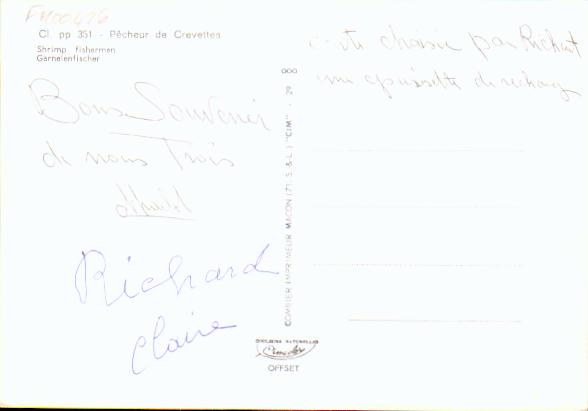 FM00676
Cl. pp 351 - Pêcheur de Crevettes
Shrimp fishermen
Garnelenfischer
Bons Souvenir
de nous Trois
Richard
Claire
carte choisie par Richard
une épuisette de rechange
COMBIER IMPRIMEUR MACON (71. S.-&-L.) "CIM" - 29
Cimcolor
OFFSET